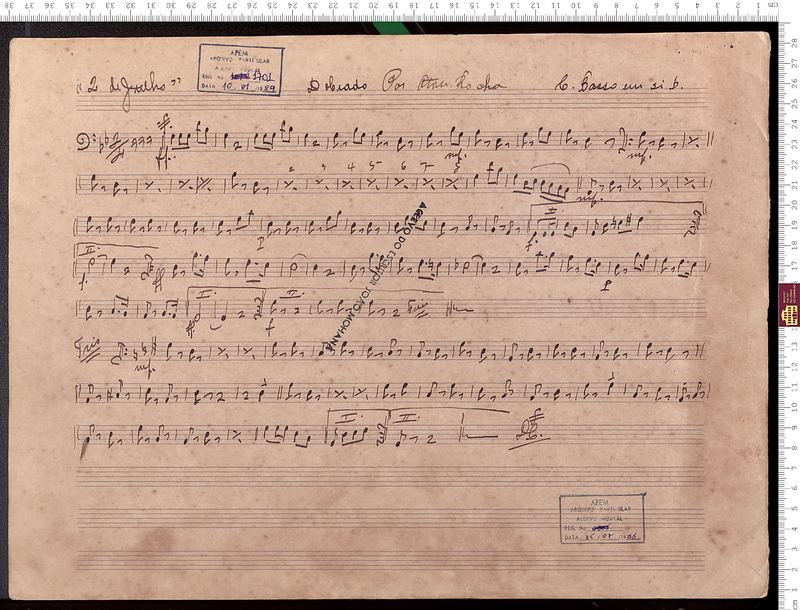 APEM
ARQUIVO PARTICULAR
REG. No 1701
DATA 10 / 01 / 1989
"2 de Julho" Dobrado Por Rocha C. Basso em si b.
ff.
mf.
2 3 4 5 6 7 8
mf.
ACERVO DO ESCRITOR JOÃO MOHANA
f.
II.
f. ff
I. II.
ff f Trio
Trio mf.
I. II. D.C.
APEM
ARQUIVO PARTICULAR
ACERVO MUSICAL
REG. No
DATA 25 / 07